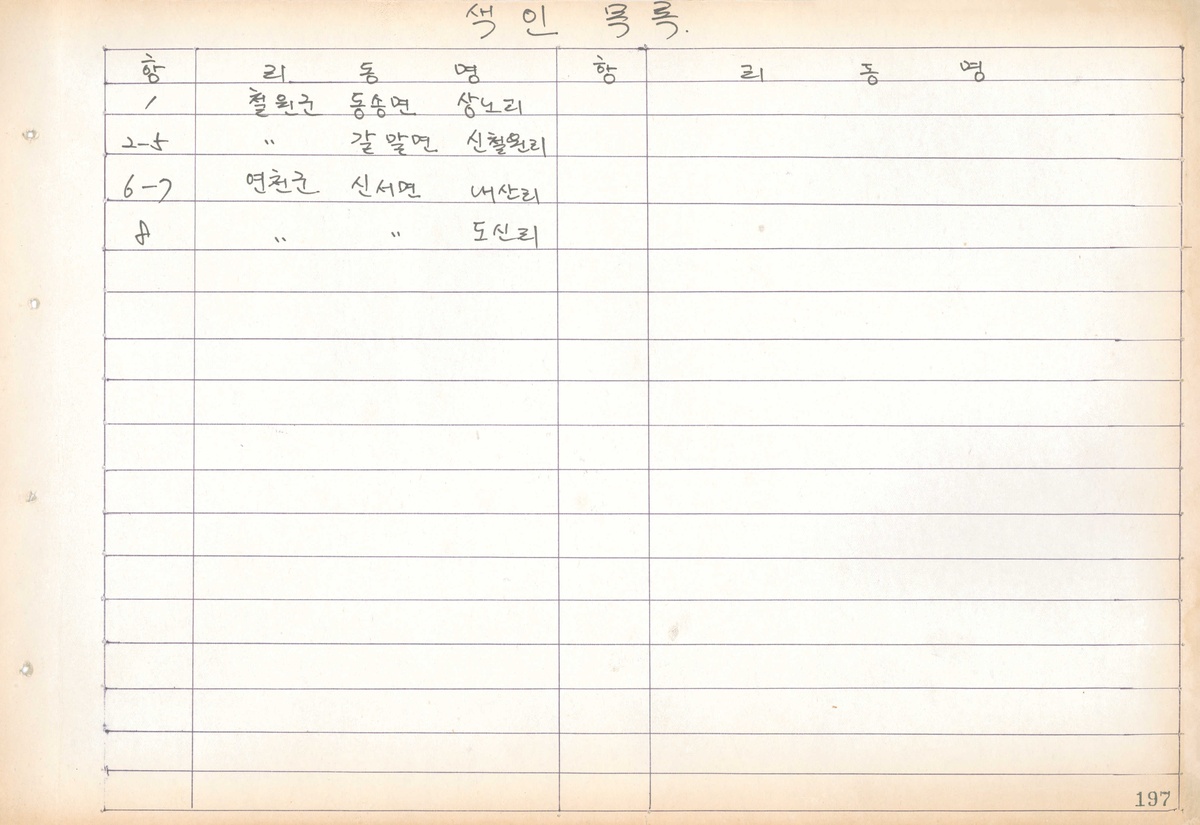 색 인 목 록.
항 리 동 명 항 리 동 명
1 철원군 동송면 상노리
2-5 〃 갈말면 신철원리
6-7 연천군 신서면 내산리
8 〃 〃 도신리
197